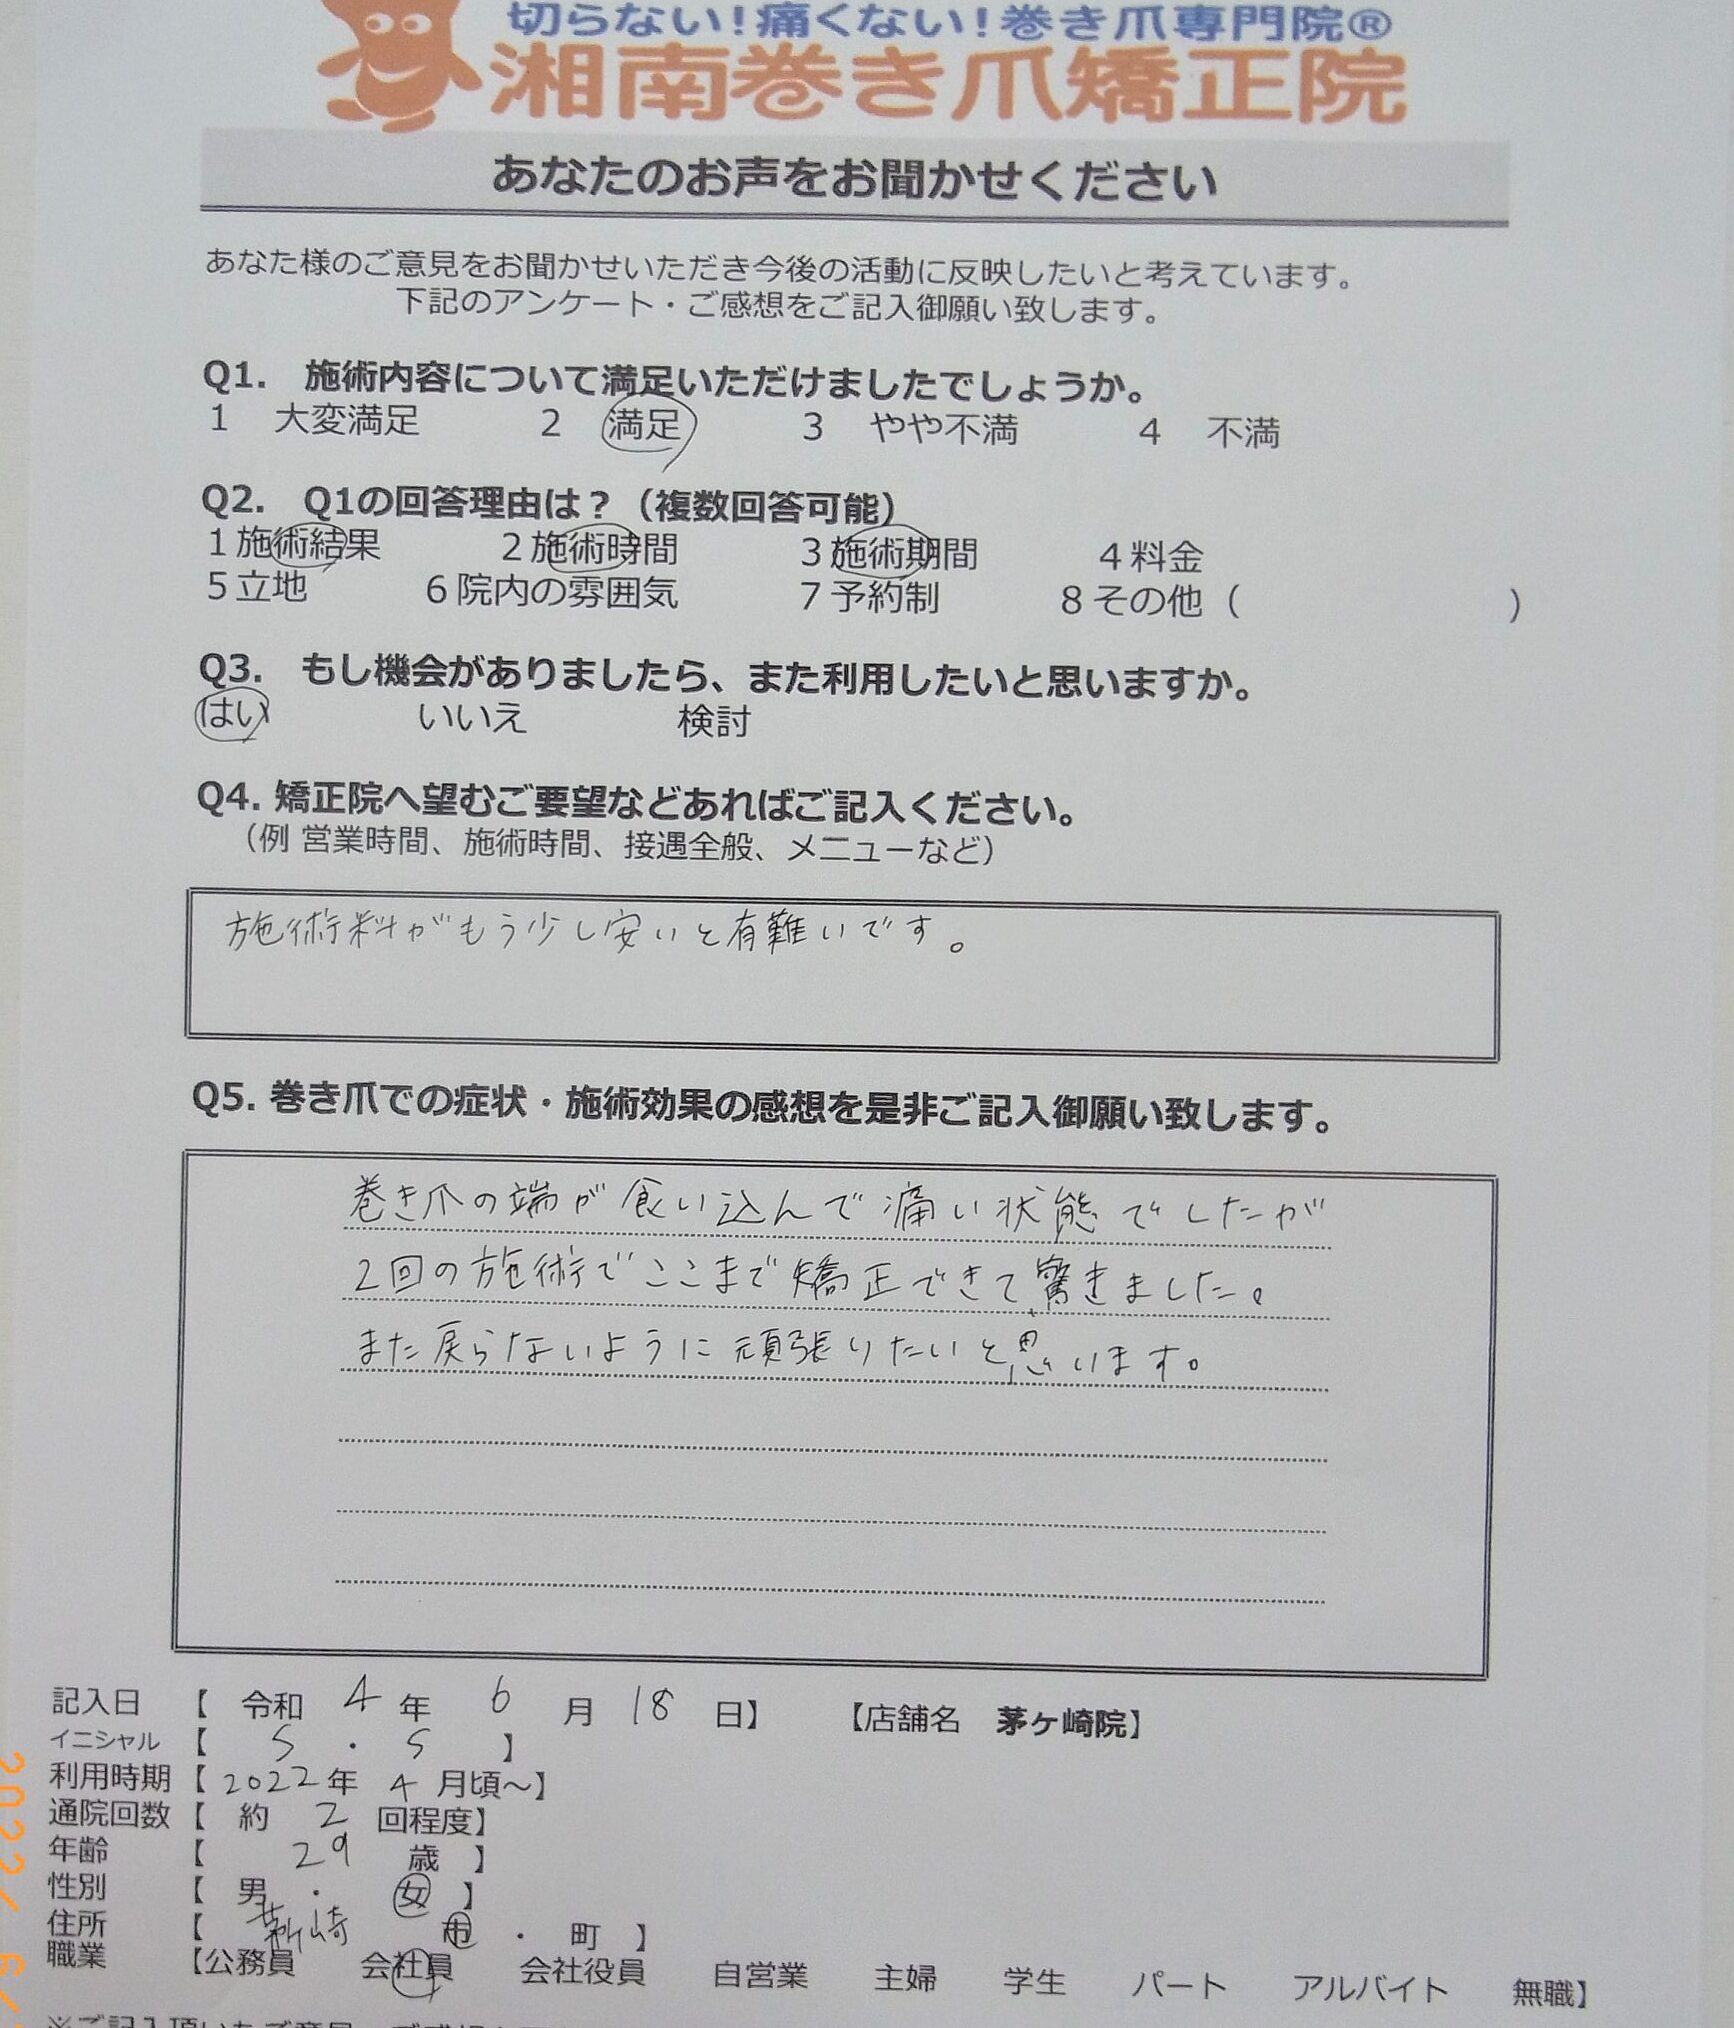 切らない！痛くない！巻き爪専門院®
湘南巻き爪矯正院
あなたのお声をお聞かせください
あなた様のご意見をお聞かせいただき今後の活動に反映したいと考えています。
下記のアンケート・ご感想をご記入御願い致します。
Q1.　施術内容について満足いただけましたでしょうか。
1　大変満足　2　満足　3　やや不満　4　不満
Q2.　Q1の回答理由は？（複数回答可能）
1 施術結果　2 施術時間　3 施術期間　4 料金
5 立地　6 院内の雰囲気　7 予約制　8 その他（　）
Q3.　もし機会がありましたら、また利用したいと思いますか。
はい　いいえ　検討
Q4. 矯正院へ望むご要望などあればご記入ください。
（例 営業時間、施術時間、接遇全般、メニューなど）
施術料がもう少し安いと有難いです。
Q5. 巻き爪での症状・施術効果の感想を是非ご記入御願い致します。
巻き爪の端が食い込んで痛い状態でしたが
2回の施術でここまで矯正できて驚きました。
また戻らないように頑張りたいと思います。
記入日　【　令和　4　年　6　月　18　日】　【店舗名　茅ヶ崎院】
イニシャル　【　S　・　S　】
利用時期【　2022年　4　月頃～】
通院回数【　約　2　回程度】
年齢　【　29　歳　】
性別　【　男　・　女　】
住所　【　茅ヶ崎　市　・　町　】
職業　【公務員　会社員　会社役員　自営業　主婦　学生　パート　アルバイト　無職】